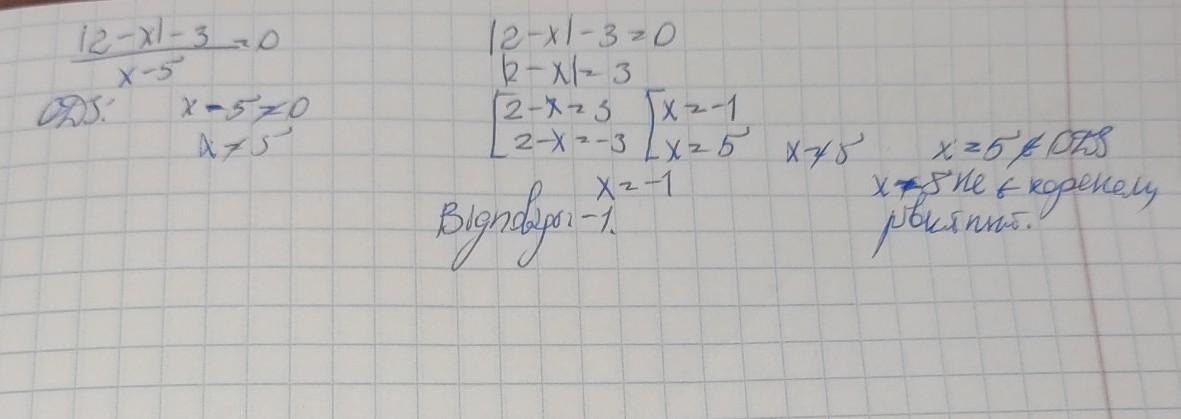 |2-x|-3
x-5
=0
ОДЗ: x-5≠0
x≠5
|2-x|-3=0
|2-x|=3
[2-x=3 [x=-1
2-x=-3 x=5 x≠5 x=5 ∉ ОДЗ
x=-1
x=5 не є коренем
Відповідь: -1.